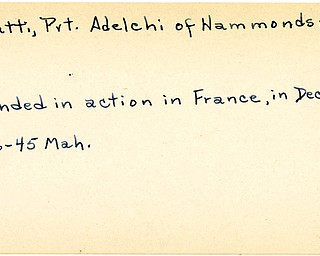 atti, Pvt. Adelchi of Hammonds
nded in action in France, in Dec
-45 Mah.